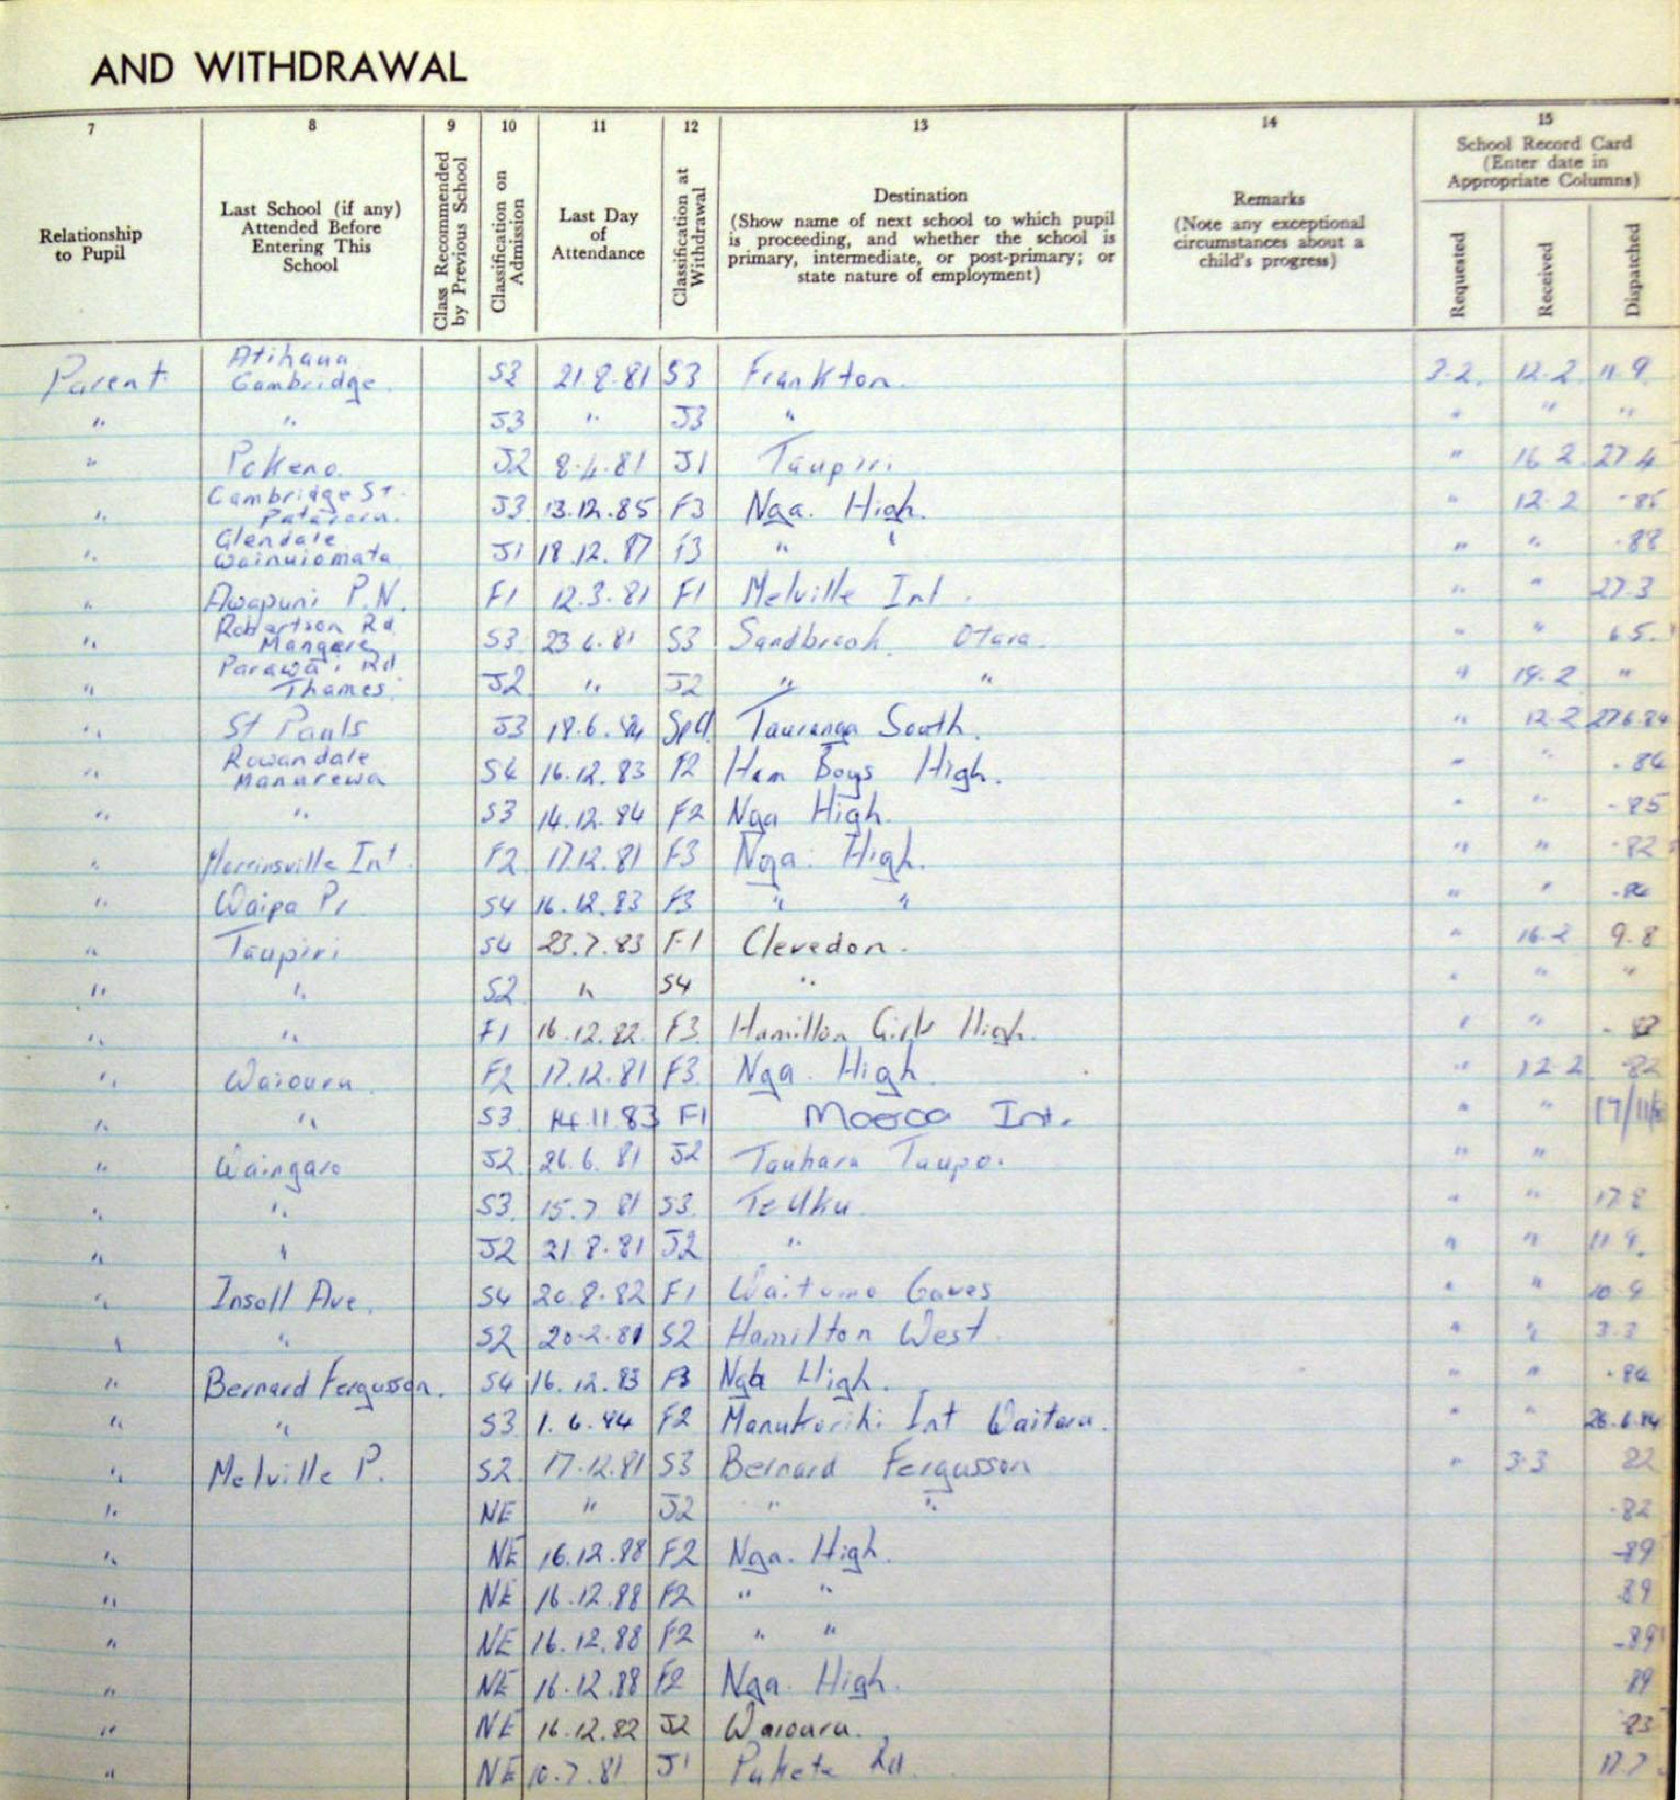 AND WITHDRAWAL
7 8 9 10 11 12 13 14 15
Relationship to Pupil
Last School (if any) Attended Before Entering This School
Class Recommended by Previous School
Classification on Admission
Last Day of Attendance
Classification at Withdrawal
Destination
(Show name of next school to which pupil is proceeding, and whether the school is primary, intermediate, or post-primary; or state nature of employment)
Remarks
(Note any exceptional circumstances about a child's progress)
School Record Card
(Enter date in Appropriate Columns)
Requested Received Dispatched
Parent Cambridge. S2 21.8.81 S3 Frankton. 3.2. 12.2 11.9
" " J3 " J3 " " " "
" Pokeno. J2 8.4.81 J1 Taupiri " 16.2 27.4
" Cambridge St. J3 13.12.85 F3 Nga. High. " 12.2 -85
" Glendale Wainuiomata J1 18.12.87 F3 " " " " -88
" Awapuni P.N. F1 12.3.81 F1 Melville Int. " " 27.3
" Robertson Rd Mangere S3 23.6.81 S3 Sandbrook Otara. " "
" Parawai Rd Thames J2 " J2 " " " 19.2 "
" St Pauls J3 18.6.84 Spcl Tauranga South. " 12.2 27.6.84
" Rowandale Manurewa S4 16.12.83 F2 Ham Boys High. " " .84
" " S3 14.12.84 F2 Nga High. " " -85
" Morrinsville Int. F2 17.12.81 F3 Nga. High. " " -82
" Waipa Pr S4 16.12.83 F3 " " " " -84
" Taupiri S4 23.7.83 F1 Clevedon. " 16.2 9.8
" " S2 " S4 " " " "
" " F1 16.12.82 F3 Hamilton Girls High. " "
" Waiouru F2 17.12.81 F3 Nga. High. " 12.2 82
" " S3 14.11.83 F1 Int. " "
" Waingaro J2 26.6.81 J2 Tauhara Taupo. " "
" " S3. 15.7.81 S3. Te Uku. " " 17.8
" " J2 21.8.81 J2 " " " 11.9.
" Insoll Ave. S4 20.8.82 F1 Waitomo Caves " " 10.9
" " S2 20.2.81 S2 Hamilton West " " 3.3
" Bernard Fergusson. S4 16.12.83 F3 Nga High. " " .84
" " S3 1.6.84 F2 Manukorihi Int Waitara. " " 26.6.84
" Melville P. S2 17.12.81 S3 Bernard Fergusson " 3.3 82
" NE " J2 " " -82
" NE 16.12.88 F2 Nga. High. -89
" NE 16.12.88 F2 " " 89
" NE 16.12.88 F2 " " -89
" NE 16.12.88 F2 Nga. High. 89
" NE 16.12.82 J2 Waiouru. 83
" NE 10.7.81 J1 Pukete Rd. 17.7